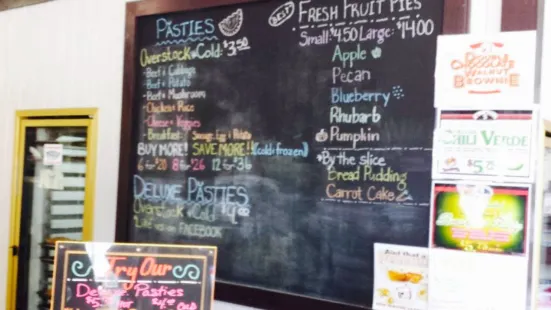 PASTIES
Overstock Cold: $3.50
- Beef & Cabbage
- Beef & Potato
- Beef & Mushroom
- Chicken & Rice
- Cheese & Veggies
- Breakfast: Sausage, Egg & Potato
BUY MORE! SAVE MORE!! (cold & frozen)
6 for $20 8 for $26 12 for $36
DELUXE PASTIES
Overstock Cold $4.00
"Like us on FACEBOOK
BEST FRESH FRUIT PIES
Small: $4.50 Large: $14.00
Apple
Pecan
Blueberry
Rhubarb
Pumpkin
*By the slice
Bread Pudding
Carrot Cake
Try Our
Deluxe Pasties
$5. $4.00 COLD
Double
Chocolate
Walnut
Brownie
CHILI VERDE
$5